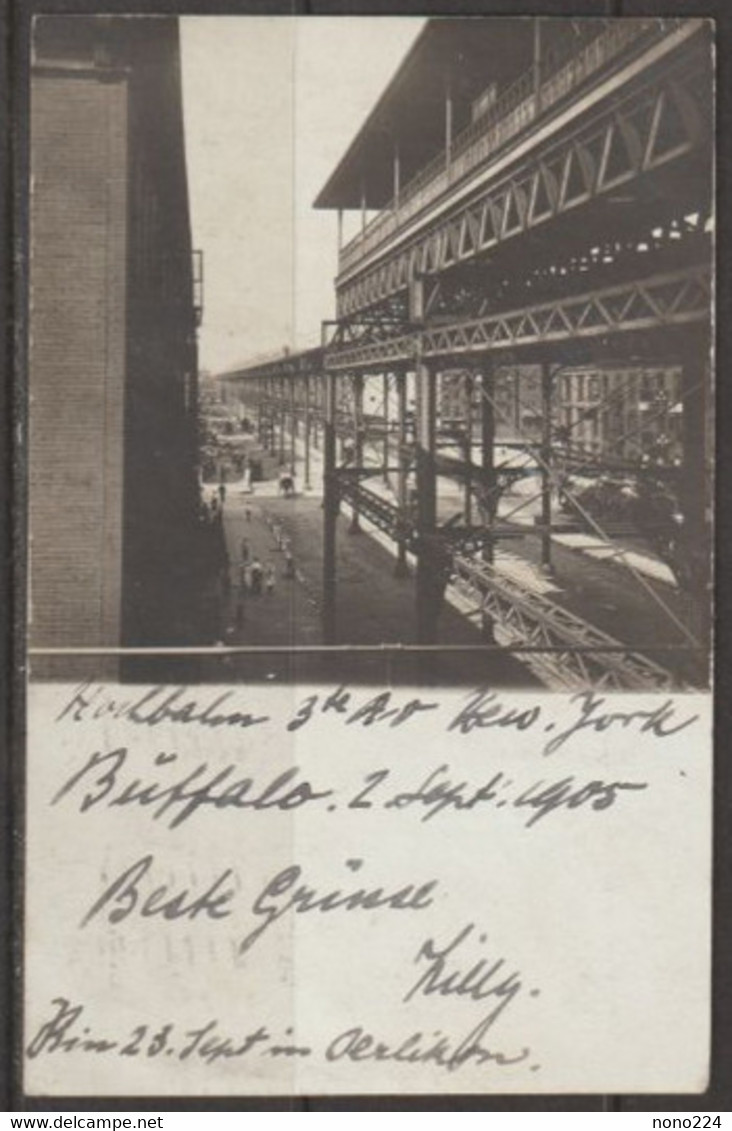 Hochbahn 3te Av New. York
Buffalo. 2 Sept. 1905
Beste Grüsse
Lilly.
Bin 23. Sept in Oerlikon.
nono224